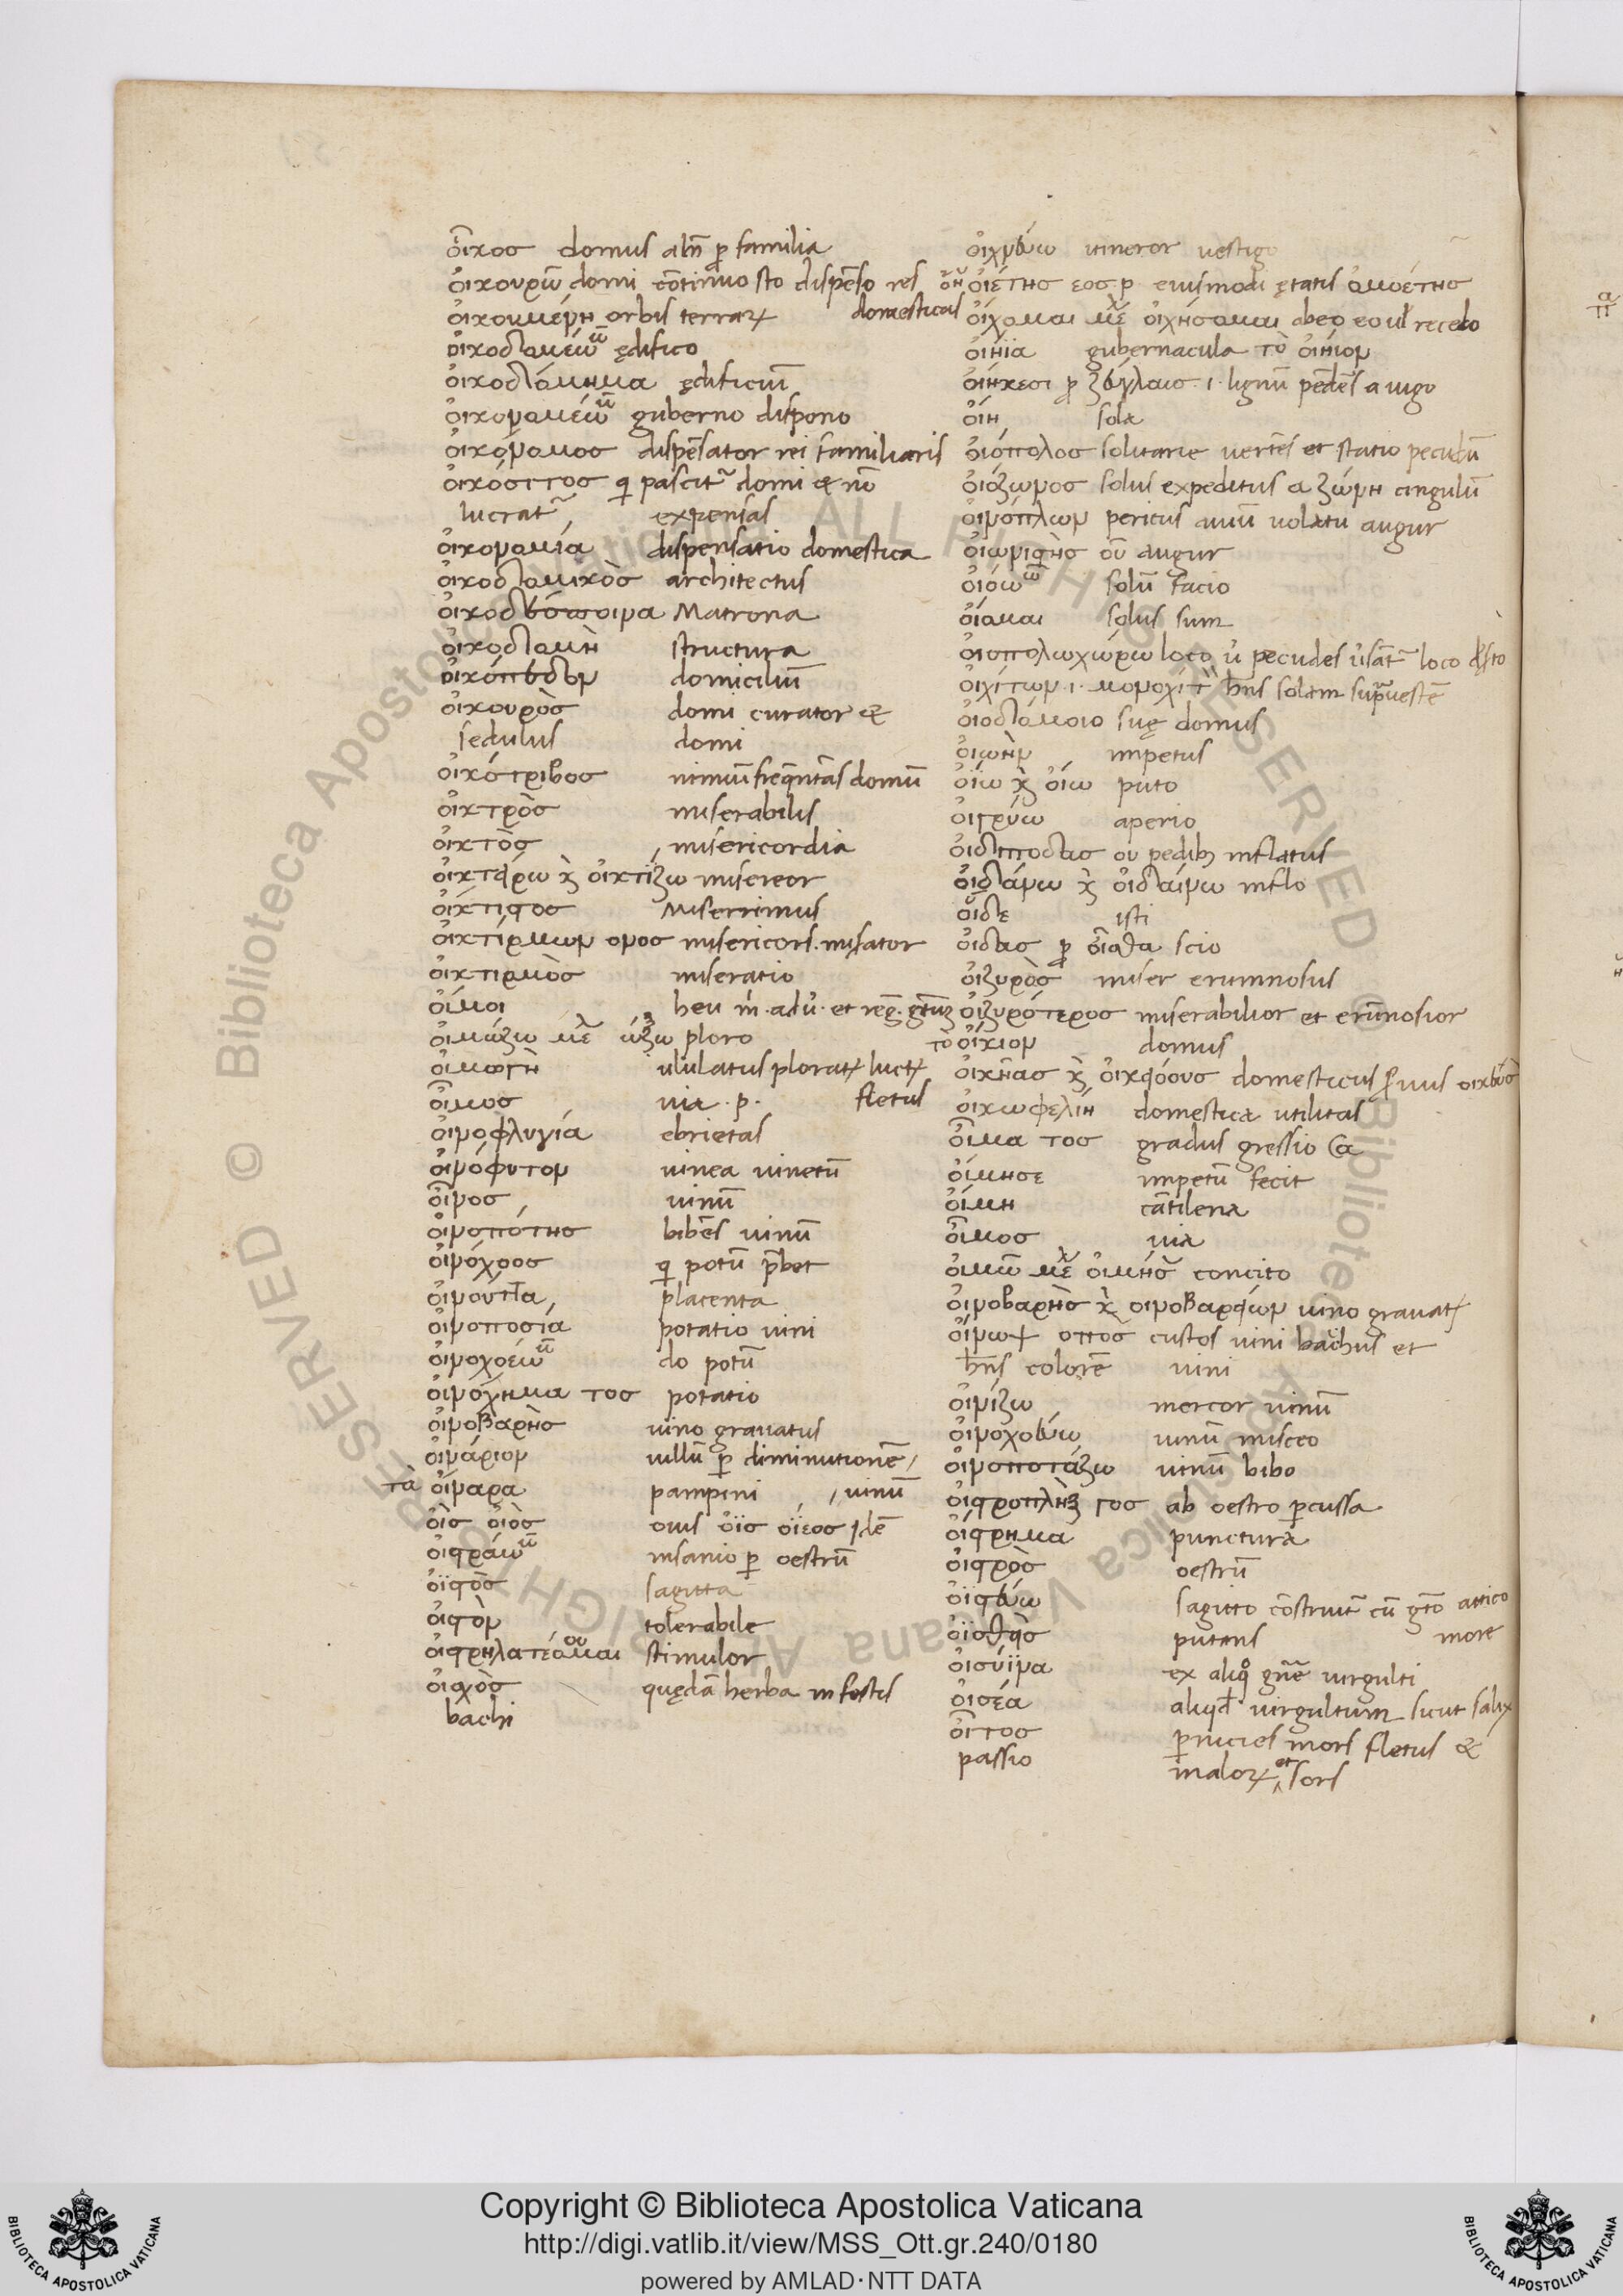 οἶκος domus aliñ ꝓ familia
οἰκουρῶ domi cōtinuo sto dispēso res
domesticas
οἰκουμένη orbis terraꝝ
οἰκοδομέω ędifico
οἰκοδόμημα ędificiū
οἰκονομέω guberno dispono
οἰκονόμος dispēsator rei familiaris
οἰκόσιτος q pascit domi et nō
lucrat expensas
οἰκονομία dispensatio domestica
οἰκοδομικὸς architectus
Matrona
οἰκοδομὴ structura
domiciliū
οἰκουρὸς domi curator et
sedulus domi
οἰκότριβος nimiū freqntās domū
οἰκτρὸς miserabilis
οἰκτὸς misericordia
οἰκτείρω κ̀ οἰκτίζω misereor
οἴκτιστος Miserrimus
οἰκτίρμων ονος misericors. misator
οἰκτιρμὸς miseratio
οἴμοι heu
οἰμώζω ploro
οἰμωγὴ ululatus plorat luct
fletus
οἶμος via . p.
οἰνοφλυγία ebrietas
οἰνόφυτον vinea vinetū
οἶνος vinū
οἰνοπότης bibēs vinū
οἰνόχοος q potū p̄bet
οἰνοῦττα placenta
οἰνοποσία potatio vini
οἰνοχοέω do potū
οἰνόχημα τος potatio
οἰνοβαρὴς vino gravatus
οἰνάριον villū ꝑ diminutionē
τὰ οἴναρα pampini vinū
οἰὸς ovis ὄϊς ὄϊεος idē
οἰστράω insanio ꝑ oestrū
οἰστὸς sagitta
οἰστὸν tolerabile
οἰστρηλατέομαι stimulor
quędā herba in festis
bachi
vestigo
οἰέτης εος eiusmodi ętatis ὁμοέτης
οἴχομαι οἰχήσομαι abeo eo vl recedo
οἰήϊα gubernacula τὸ οἰήϊον
οἰήκεσι ꝓ ζεύγλαις .i. lignū pēdēs a iugo
οἴη sola
οἰόπολος solitarie vertēs et statio pecudū
οἰόζωνος solus expeditus a ζώνη cingulū
peritus aviū volatu augur
οἰωνιστὴς οῦ augur
οἰόω solū facio
οἴομαι solus sum
loco pecudes
οἰχίτων .i. μονοχίτ hñs solam supravestē
οἰοδόμοιο suę domus
impetus
οἴω κ̀ ὀίω puto
aperio
οἰδίποδας ου pedibꝫ inflatus
οἰδάνω κ̀ οἰδαίνω inflo
οἵδε isti
οἶδας ꝓ οἶσθα scio
οἰζυρὸς miser erumnosus
οἰζυρότερος miserabilior et erūnosior
τὸ οἰκίον domus
domesticus
οἰκωφελίη domestica utilitas
οἶμα τος gradus gressio
οἴμησε impetū fecit
οἴμη cātilena
οἶμος via
οἰμῶ concito
οἰνοβαρὴς κ̀ οἰνοβαρείων vino gravat
οἴνωψ οπος custos vini bachus et
hñs colorē vini
οἰνίζω mercor vinū
οἰνοχοεύω vinū misceo
οἰνοποτάζω vinū bibo
οἰστροπλὴξ γος ab oestro percussa
οἴστρημα punctura
οἰστρὸς oestrū
οἰστεύω sagitto cōstruit cū gto attico
more
οἰσθεὶς putans
οἰσύϊνα ex aliqo gñe virgulti
οἰσέα aliqd virgultum sicut salix
οἶτος ꝑnicies mors fletus et
passio maloꝝ et sors
Copyright © Biblioteca Apostolica Vaticana
http://digi.vatlib.it/view/MSS_Ott.gr.240/0180
powered by AMLAD·NTT DATA